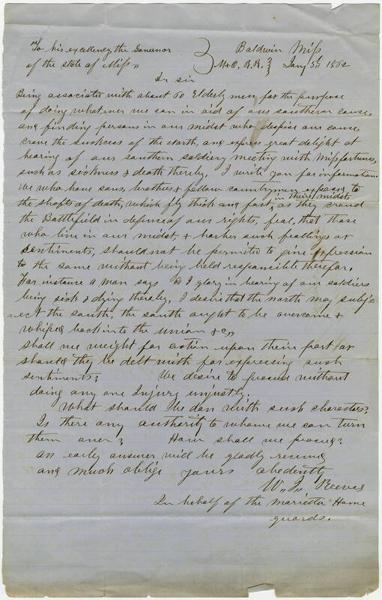 To his excelency the Govenor Baldwin Miss
of the state of Miss M.&O. R.R. Jany 3d 1862
Dr sir
Being associated with about 60 Elderly men for the purpose
of doing whatever we can in aid of our southern cause
and finding persons in our midst who despise our cause,
crave the success of the North, and express great delight at
hearing of our southern soldiery meeting with Misfortunes,
such as sickness & death thereby, I write you for information
We who have sons, brothers & fellow cuntrymen exposed to
the shafts of death, which fly thick and fast, as they in their midst, around
the Battlefield in defence of our rights, feal, that those
who live in our midst, & harbor such feelings or
sentiments, should not be permitted to give expression
to the same without being held responcible therefor.
For instance a man says I glory in hearing of our soldiers
being sick & dying thereby, I desire that the north may subj-
ect the south, the south ought to be overcome &
whiped back into the union &c,
shall we waight for action upon their part or
should they be delt with for expressing such
sentiments? We desire to proceed without
doing any one Injury unjustly.
What should be don with such characters?
Is there any authority to whome we can turn
them over? How shall we proceed?
an early answer will be gladly received
and much oblige yours obediently
W. Reeves
In behalf of the Marietta Home
guards.